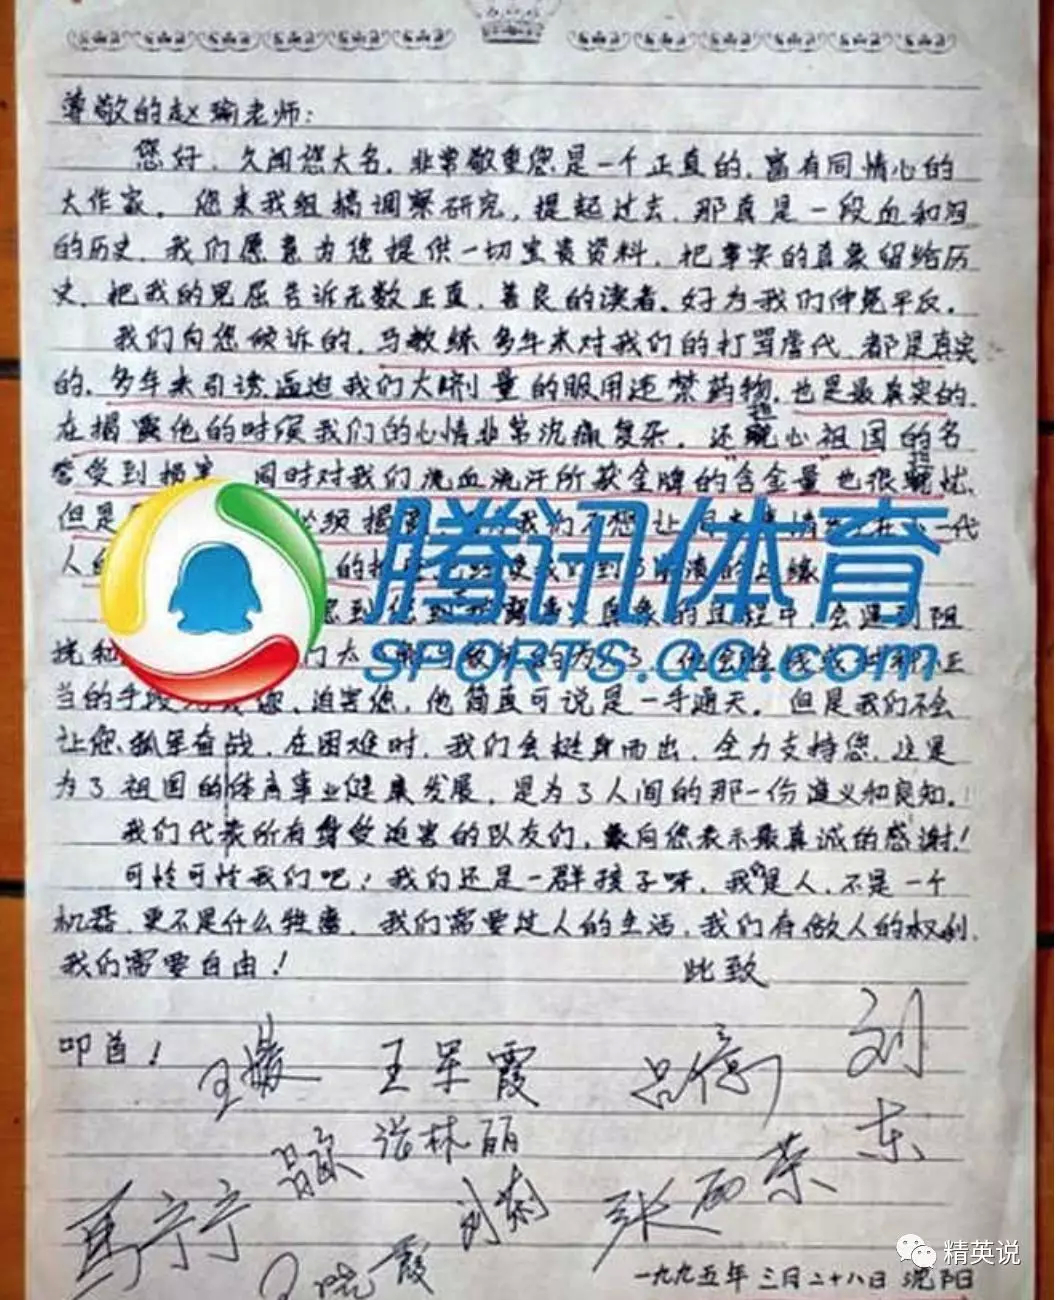 尊敬的赵瑜老师:
您好,久闻您大名,非常敬重您是一个正真的,富有同情心的
大作家。您来我组搞调察研究,提起过去,那真是一段血和泪
的历史,我们愿意为您提供一切宝贵资料,把事实的真象留给历
史,把我的冤屈告诉无数正真、善良的读者,好为我们伸冤平反。
我们向您倾诉的,马教练多年来对我们的打骂虐代,都是真实
的。多年来引诱,逼迫我们大剂量的服用违禁药物,也是最真实的,
在揭露他的时候我们的心情非常沉痛复杂,还担心祖国的名
誉受到损害,同时对我们流血流汗所获金牌的"含金量"也很担忧,
但是 必须揭 我们不想让
人的 的
腾讯体育
真象的过程中,会遇到阻
SPORTS.QQ.com
当的手段 您,迫害您,他简直可说是一手通天。但是我们不会
让您孤军奋战,在困难时,我们会挺身而出,全力支持您,这是
为了祖国的体育事业健康发展,是为了人间的那一份道义和良知。
我们代表所有身受迫害的队友们,向您表示最真诚的感谢!
可怜可怜我们吧!我们还是一群孩子呀,我们是人,不是一个
机器,更不是什么牲畜,我们需要过人的生活,我们有做人的权利,
我们需要自由! 此致
叩首! 王媛 王军霞 吕亿 刘东
吕欧 张林丽
马宁宁 刘莉 张丽荣
王晓霞
一九九五年三月二十八日 沈阳
精英说